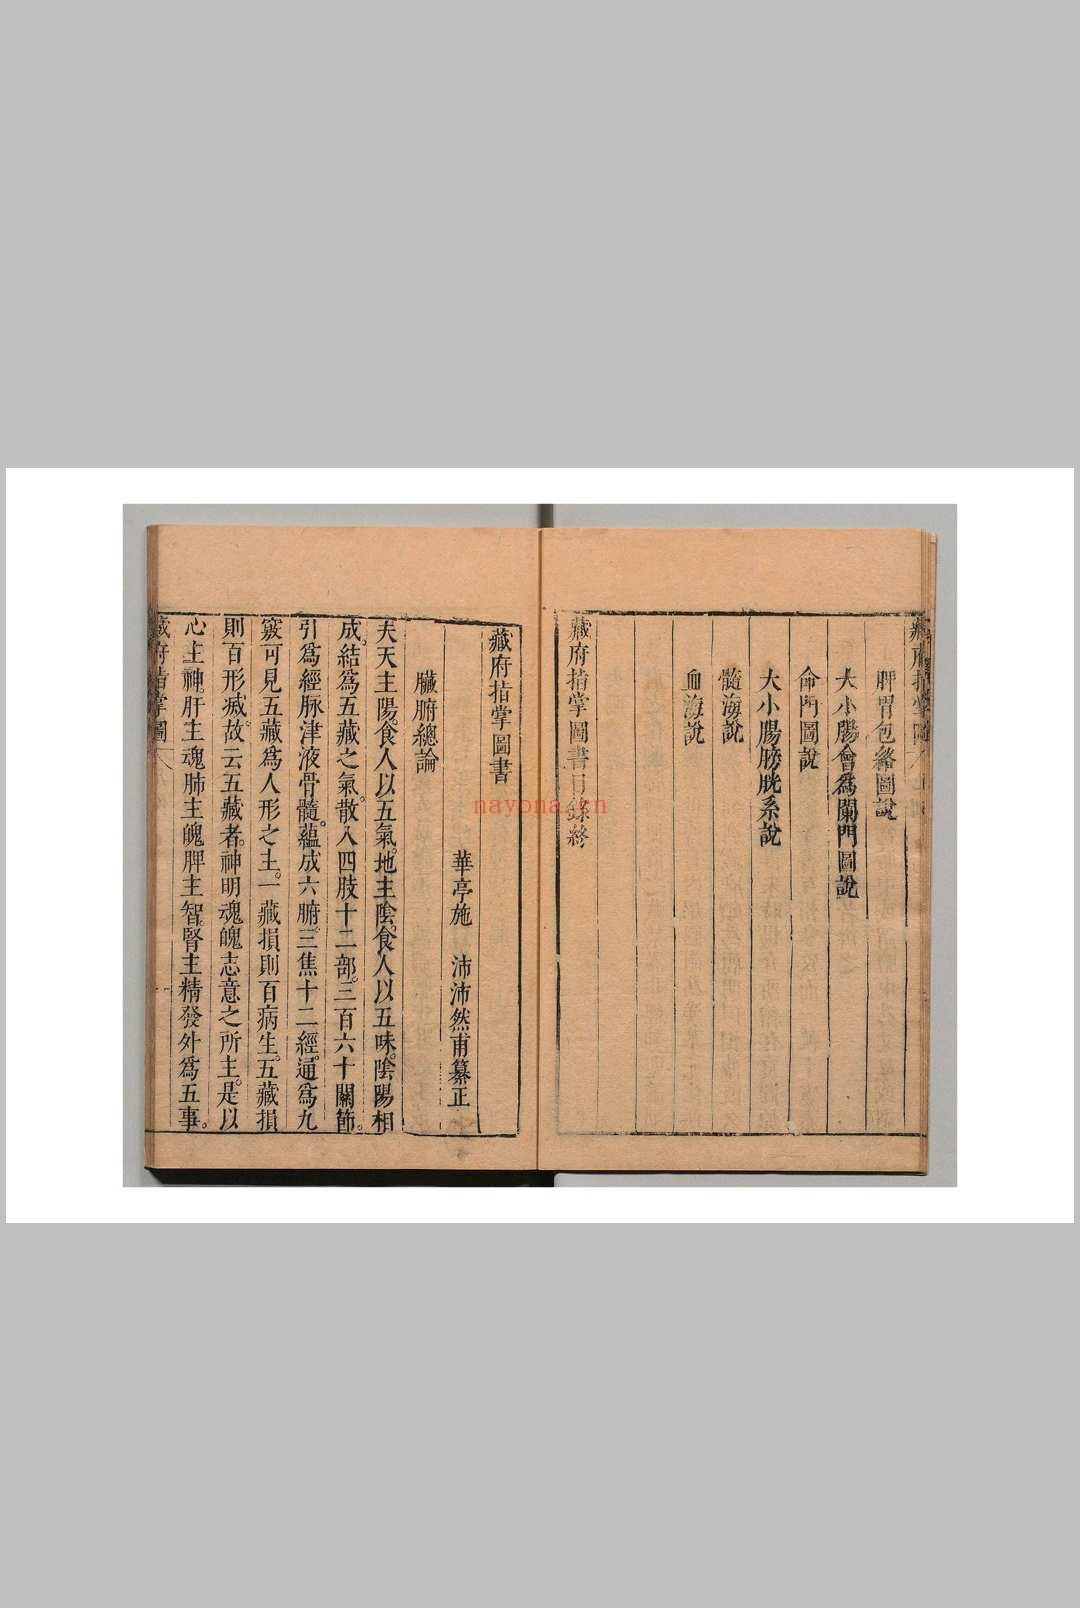 脾胃包絡圖說
大小腸會爲闌門圖說
命門圖說
大小腸膀胱系說
髓海說
血海說
藏府指掌圖書目錄終
藏府指掌圖書
華亭施 沛沛然甫纂正
臟腑總論
夫天主陽。食人以五氣。地主陰。食人以五味。陰陽相
成。結爲五藏之氣。散入四肢十二部。三百六十關節。
引爲經脉津液骨髓。蘊成六腑。三焦十二經。通爲九
竅可見五藏爲人形之主。一藏損則百病生。五藏損
則百形滅。故云五藏者。神明魂魄志意之所主。是以
心主神。肝主魂肺主魄脾主智。腎主精發外爲五事。
藏府指掌圖
nayona.cn